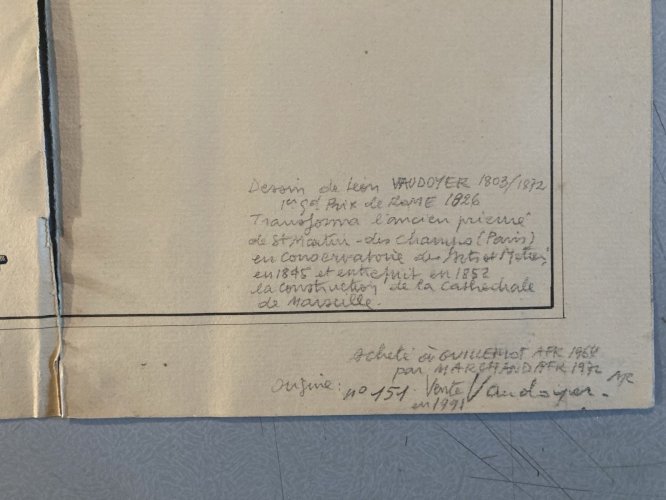 Dessin de Léon VAUDOYER 1803/1872
1er gd Prix de ROME 1826
Transforma l'ancien prieuré
de St Martin-des Champs (Paris)
en Conservatoire des Arts et Métiers
en 1845 et entreprit en 1852
la construction de la Cathédrale
de Marseille.
Acheté à GUILLEMOT AFR 1968
par MARCHAND AFR 1972
origine: n° 151 Vente Vaudoyer.
en 1991